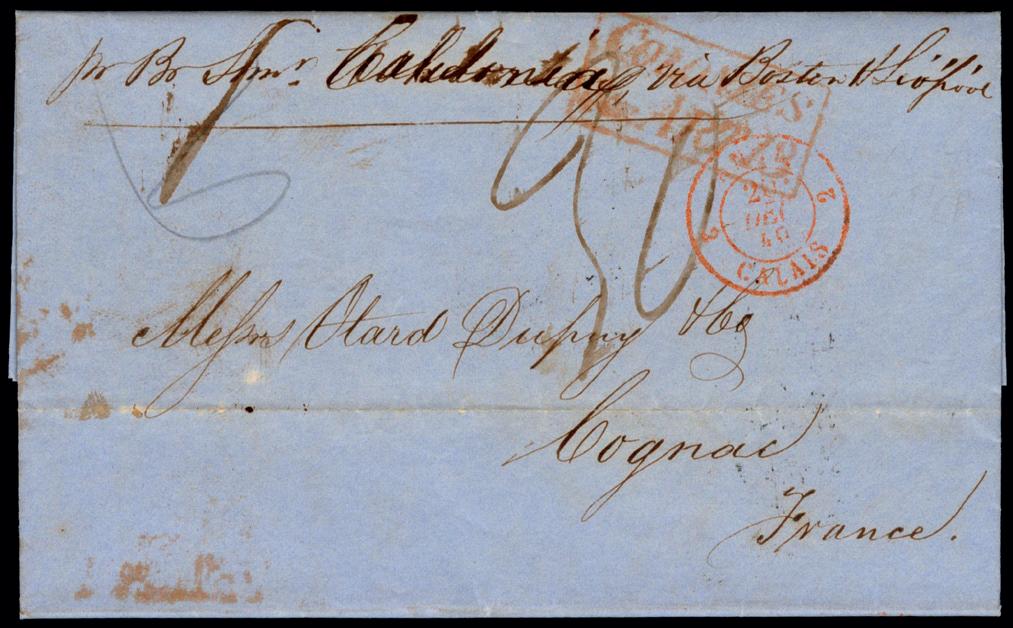 pr Br Stmr Caledonia, via Boston & Liv'pool
COLONIES
&c. ART. 12
2
29
DEC
46
2
CALAIS
Messrs Otard Dupuy & Co
Cognac
France.